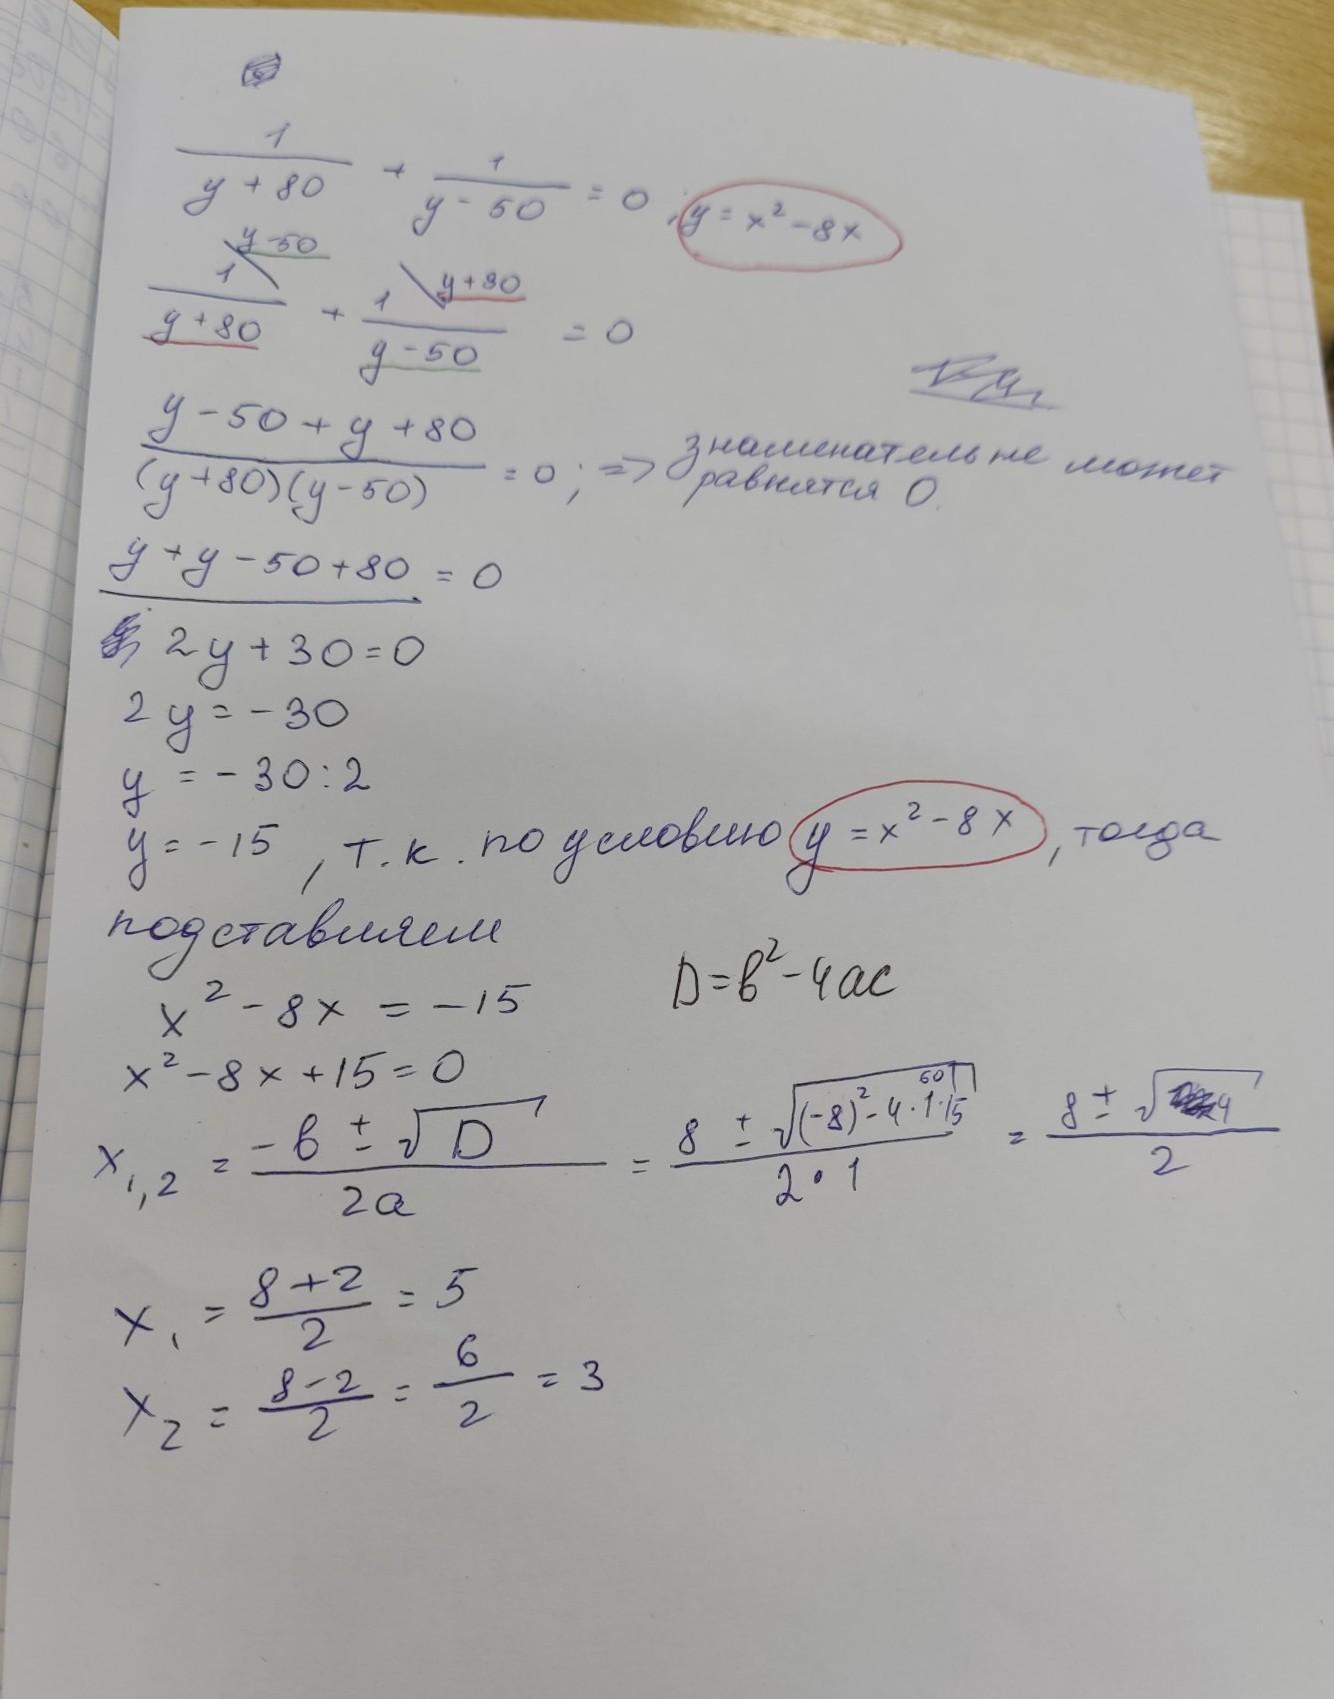 1/(y + 80) + 1/(y - 50) = 0 ; y = x² - 8x
1\y-50/(y + 80) + 1\y+80/(y - 50) = 0
(y - 50 + y + 80)/((y + 80)(y - 50)) = 0 ; => знаменатель не может
равнятся 0.
y + y - 50 + 80 = 0
2y + 30 = 0
2y = - 30
y = - 30 : 2
y = - 15 , т.к. по условию y = x² - 8x , тогда
подставляем
x² - 8x = - 15 D = b² - 4ac
x² - 8x + 15 = 0
x₁,₂ = (- b ± √D)/(2a) = (8 ± √((-8)² - 4 · 1 · 15))/(2 · 1) = (8 ± √4)/2
60
x₁ = (8 + 2)/2 = 5
x₂ = (8 - 2)/2 = 6/2 = 3